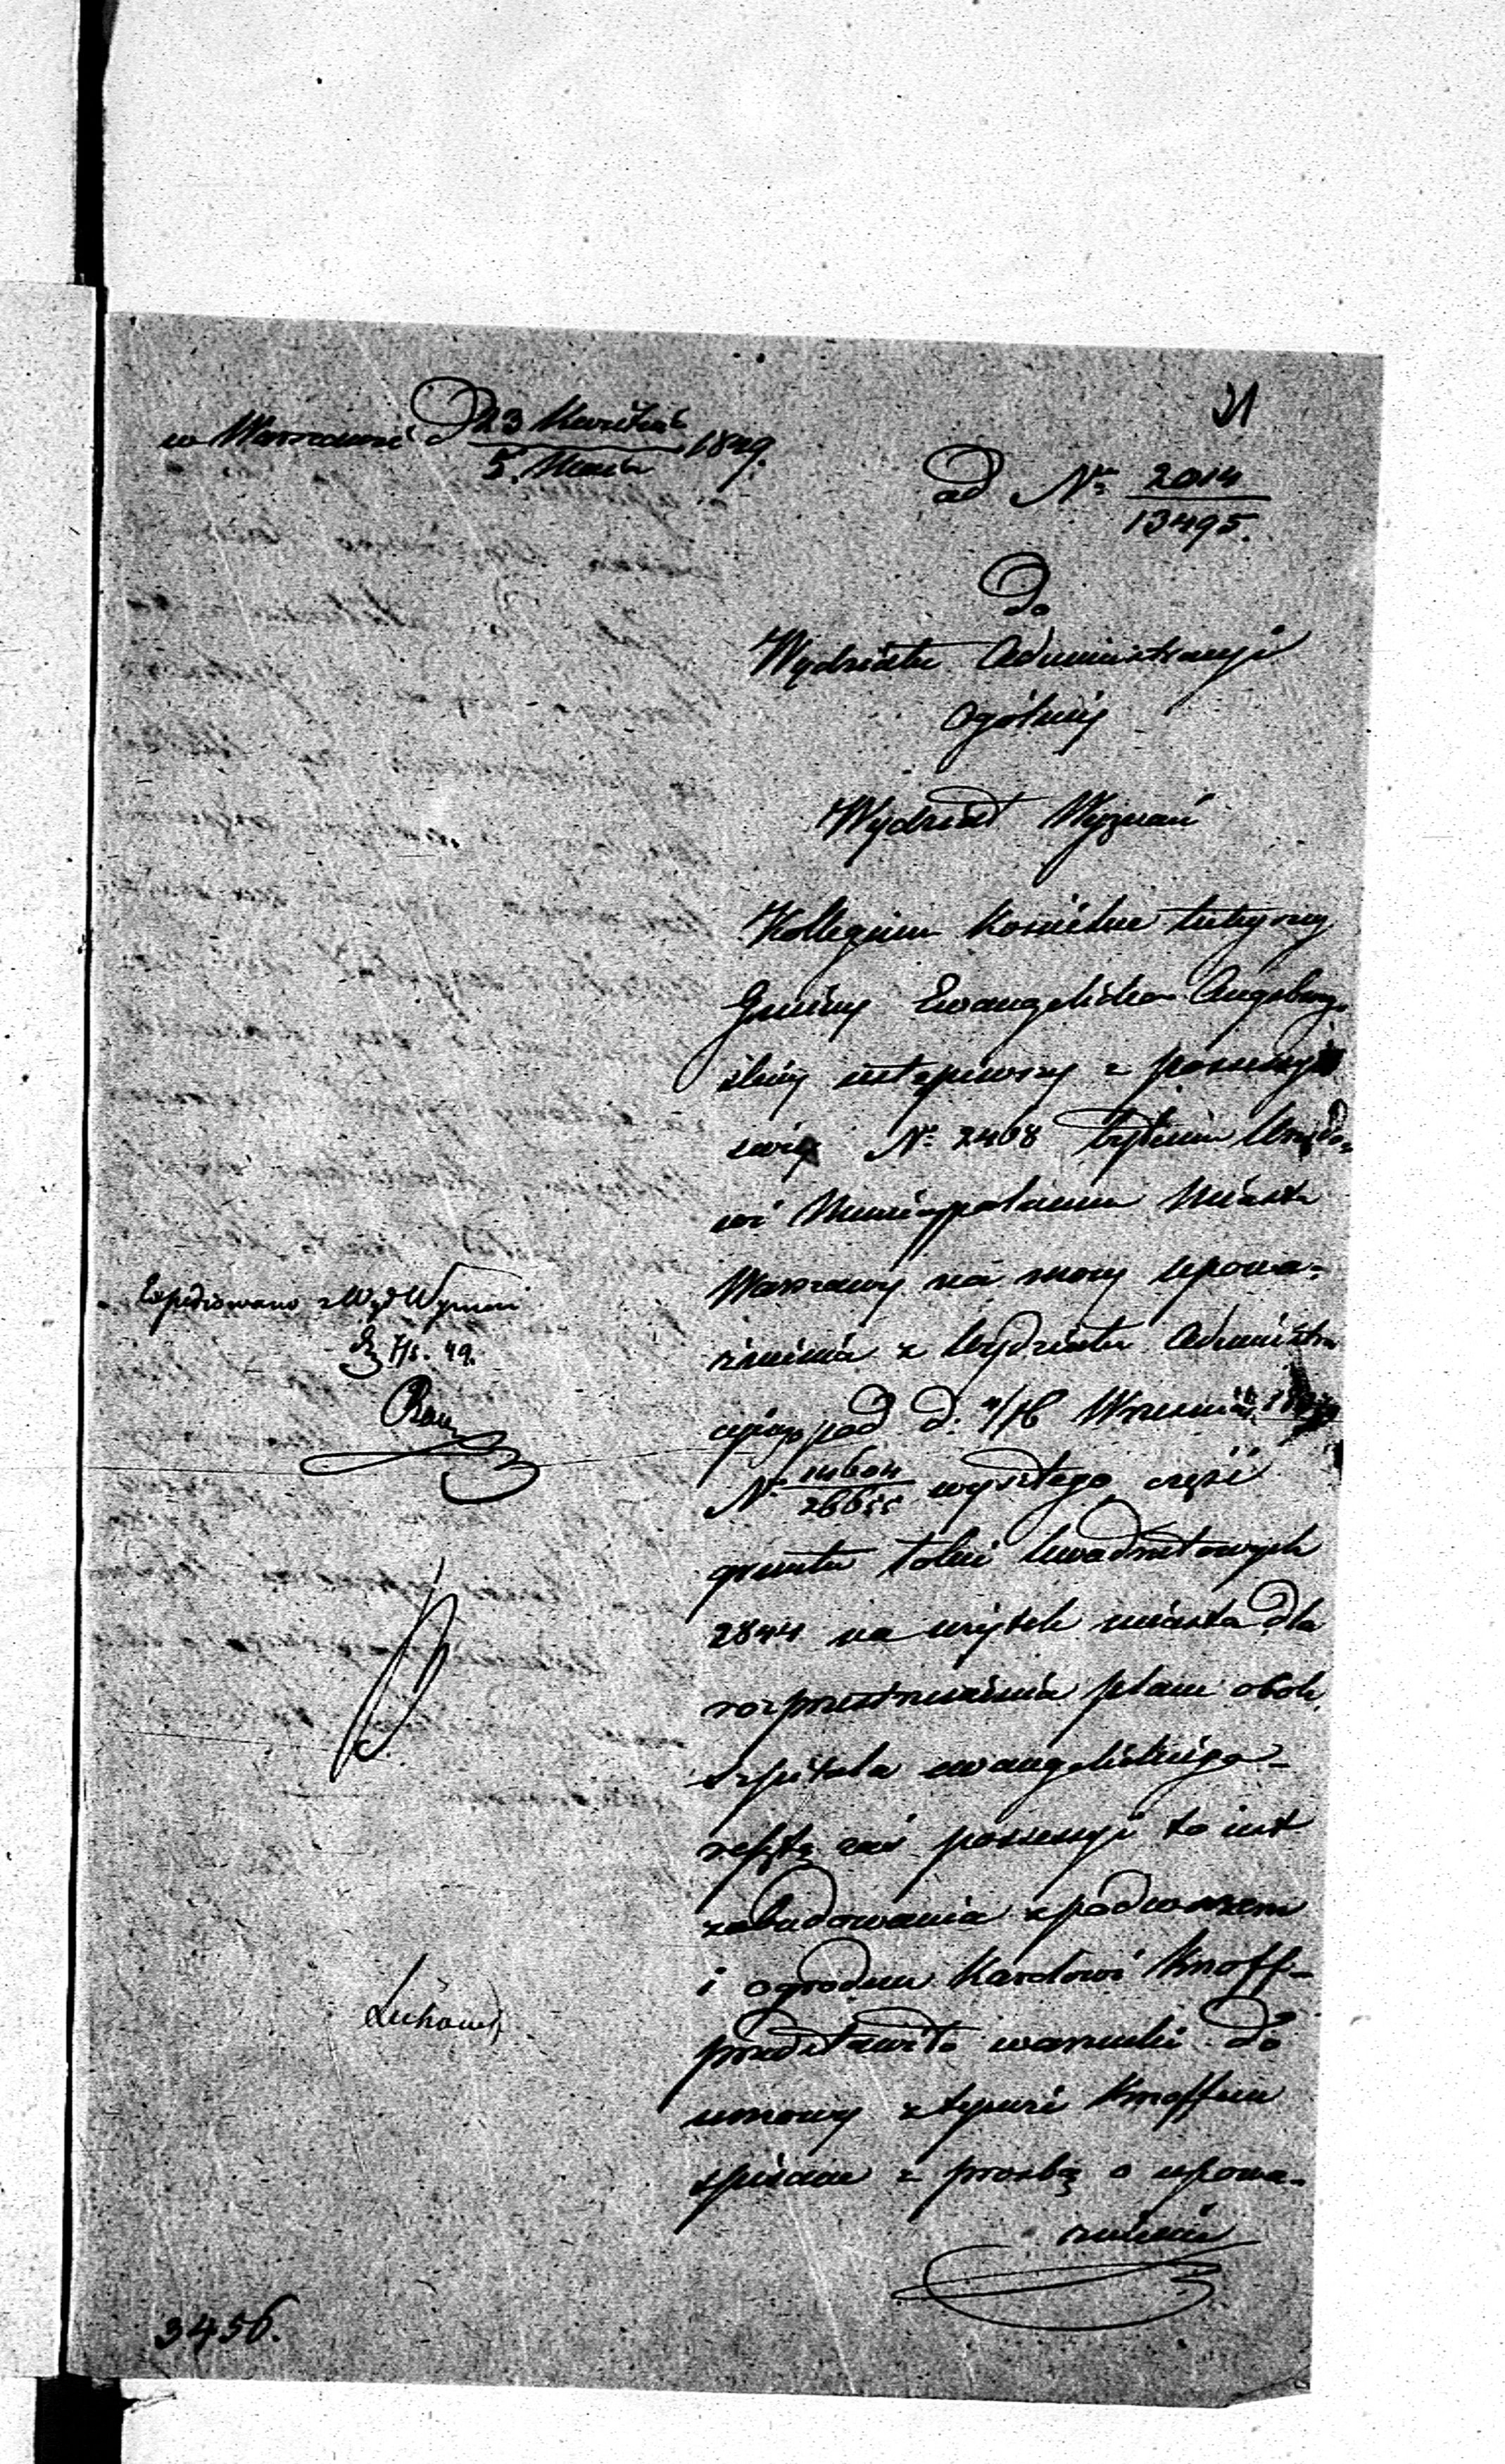 31
w Warszawie d 23 Kwietnia / 5. Maia 1849.
ad Nr 2014 / 13495.
Do
Wydziału Administracyi
Ogólnéy
Wydział Wyznań
Kollegium Kościelne tutejszej
Gminy Ewangelicko Augsburg-
skiej ustąpiwszy z possessyi
swéj Nr 2408 tytułem
wi Municypalnemu Miasta
Warszawy na mocy upowa-
żnienia z Wydziału Administra
cyjnego pod d. 4/16 Września
Nr 14604 / 26655 wyszłego, część
gruntu łokci kwadratowych
2844 na użytek miasta dla
rozprzestrzenienia placu obok
szpitala ewangelickiego
resztę zaś possessyi to iest
zabudowania z podworzem
i ogrodem Karolowi Knoff
przedstawiło warunki do
umowy z tymże Knoffem
spisane z prośbą o upowa-
żnienie
Expediowano z Wyd Wyznań
7/5. 49.
Rau
3456.